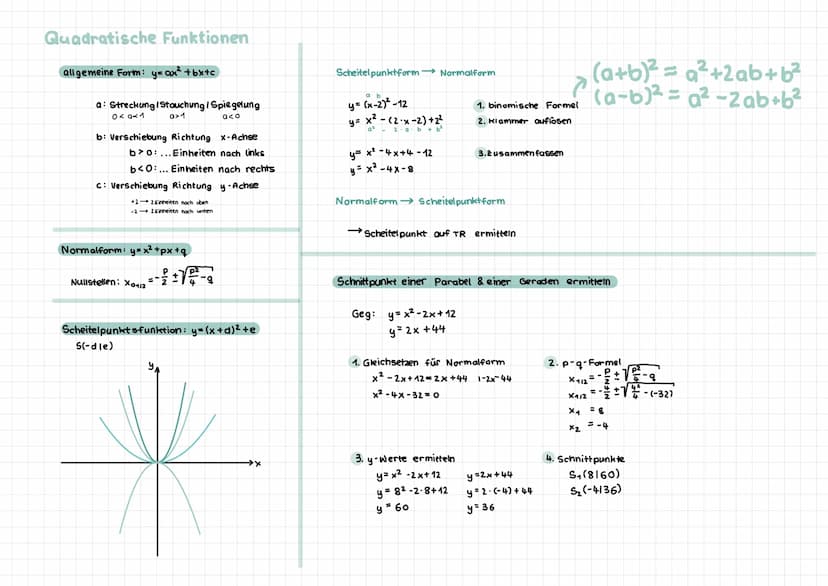 Quadratische Funktionen
allgemeine Form: y=ax²+bx+c
a: Streckung/Stauchung/Spiegelung
0<a<1 a>1 a<0
b: Verschiebung Richtung x-Achse
b>0: ...Einheiten nach links
b<0: ... Einheiten nach rechts
c: Verschiebung Richtung y-Achse
+2 → 2 Einheiten nach oben
-2 → 2 Einheiten nach unten
Normalform: y=x²+px+q
Nullstellen: x₀₁/₂ = -p/2 ± √(p²/4 - q)
Scheitelpunktsfunktion: y=(x+d)²+e
S(-d|e)
y
x
Scheitelpunktform → Normalform
a b
y= (x-2)² -12
y= x² - (2·x·2)+2²
a² - 2·a·b + b²
y= x² -4x+4 -12
y= x² -4x-8
1. binomische Formel
2. Klammer auflösen
3. zusammenfassen
(a+b)² = a²+2ab+b²
(a-b)² = a² -2ab+b²
Normalform → Scheitelpunktform
→ Scheitelpunkt auf TR ermitteln
Schnittpunkt einer Parabel & einer Geraden ermitteln
Geg: y= x²-2x+12
y= 2x+44
1. Gleichsetzen für Normalform
x² -2x+12=2x+44 |-2x-44
x² -4x-32=0
2. p-q-Formel
x₁/₂ = -p/2 ± √(p²/4 - q)
x₁/₂ = -4/2 ± √(4²/4 - (-32))
x₁ = 8
x₂ = -4
3. y-Werte ermitteln
y= x² -2x+12 y=2x+44
y= 8² -2·8+12 y= 2·(-4)+44
y= 60 y= 36
4. Schnittpunkte
S₁(8|60)
S₂(-4|36)